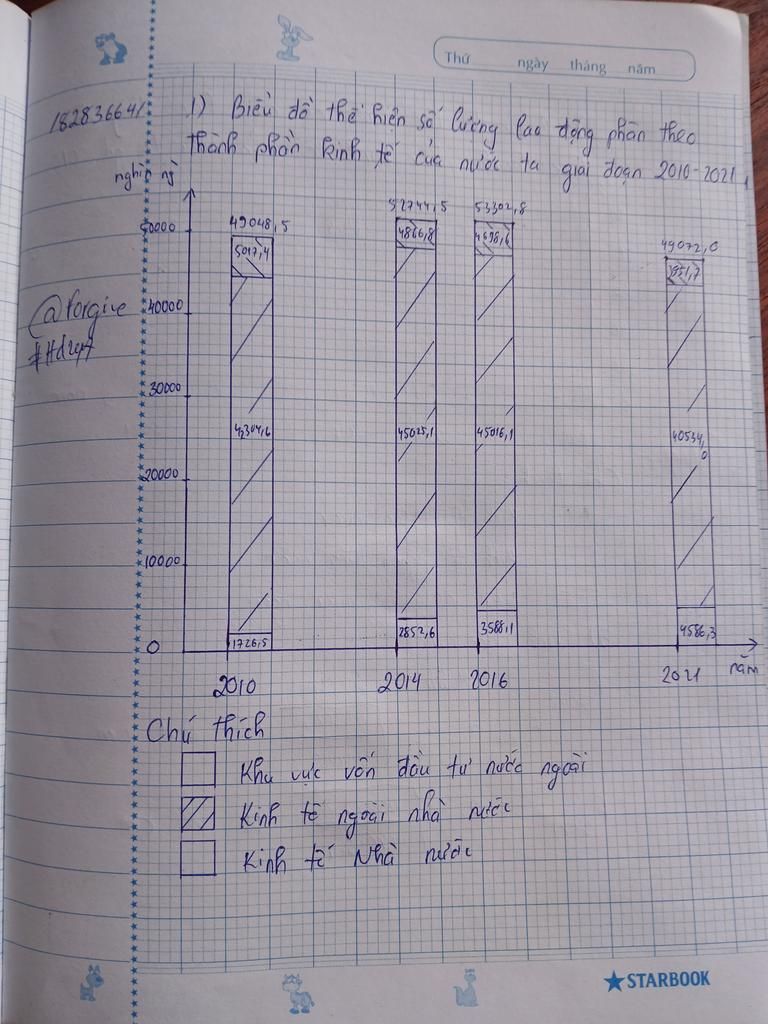 Thứ ngày tháng năm
182836641
1) Biểu đồ thể hiện số lượng lao động phân theo
thành phần kinh tế của nước ta giai đoạn 2010-2021
nghìn ng
50000
40000
30000
20000
10000
0
49048,5
5017,4
42304,6
1726,5
52744,5
4866,8
45025,1
2852,6
53302,8
4698,6
45016,1
3588,1
49072,0
3951,7
40534,0
4586,3
@forgive
2010 2014 2016 2021 năm
Chú thích
Khu vực vốn đầu tư nước ngoài
Kinh tế ngoài nhà nước
Kinh tế Nhà nước
STARBOOK